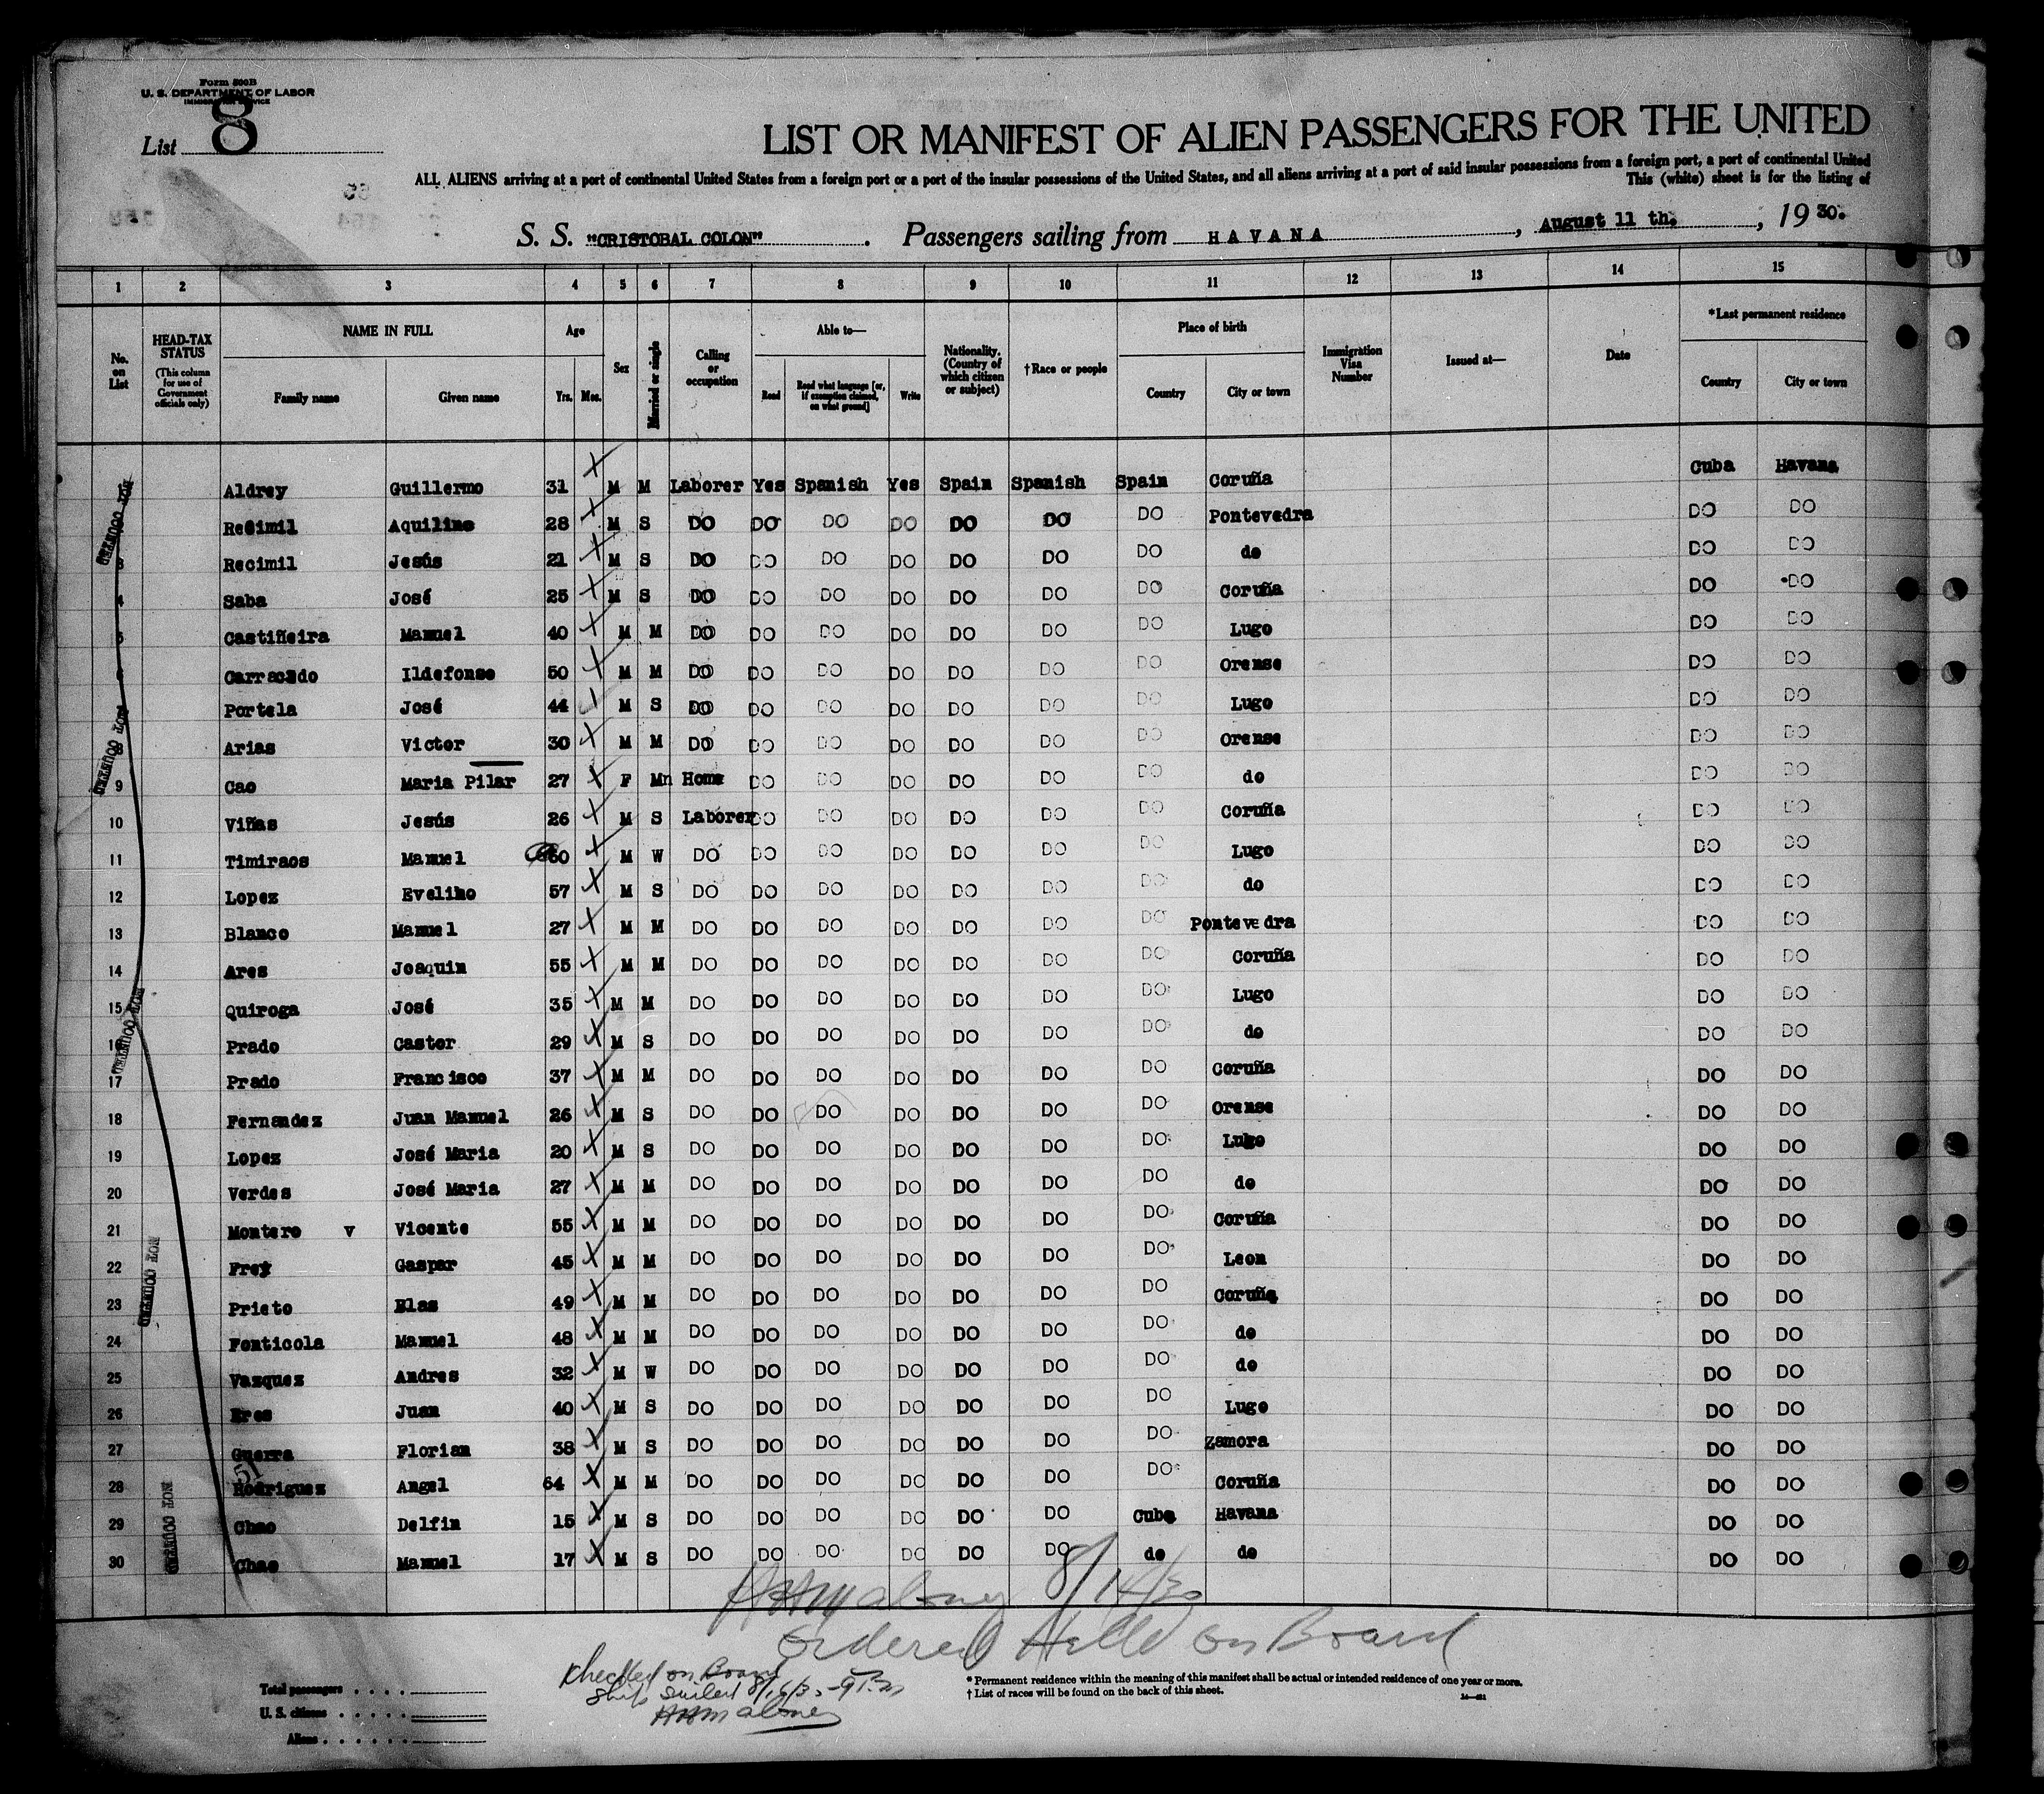 Form 500B
U. S. DEPARTMENT OF LABOR
IMMIGRATION SERVICE
List 8
LIST OR MANIFEST OF ALIEN PASSENGERS FOR THE UNITED
ALL ALIENS arriving at a port of continental United States from a foreign port or a port of the insular possessions of the United States, and all aliens arriving at a port of said insular possessions from a foreign port, a port of continental United
This (white) sheet is for the listing of
S. S. "CRISTOBAL COLON" . Passengers sailing from HAVANA , August 11 th. , 19 30.
1 2 3 4 5 6 7 8 9 10 11 12 13 14 15
No. on List
HEAD-TAX STATUS (This column for use of Government officials only)
NAME IN FULL
Family name Given name
Age
Yrs. Mos.
Sex
Married or single
Calling or occupation
Able to—
Read Read what language [or, if exemption claimed, on what ground] Write
Nationality. (Country of which citizen or subject)
† Race or people
Place of birth
Country City or town
Immigration Visa Number
Issued at—
Date
*Last permanent residence
Country City or town
Aldrey Guillermo 31 M M Laborer Yes Spanish Yes Spain Spanish Spain Coruña Cuba Havana
Recimil Aquilino 28 M S DO DO DO DO DO DO DO Pontevedra DO DO
3 Recimil Jesús 21 M S DO DO DO DO DO DO DO do DO DO
4 Saba José 25 M S DO DO DO DO DO DO DO Coruña DO DO
5 Castiñeira Manuel 40 M M DO DO DO DO DO DO DO Lugo DO DO
6 Carracedo Ildefonso 50 M M DO DO DO DO DO DO DO Orense DO DO
Portela José 44 M S DO DO DO DO DO DO DO Lugo DO DO
8 Arias Victor 30 M M DO DO DO DO DO DO DO Orense DO DO
9 Cao Maria Pilar 27 F Mn Home DO DO DO DO DO DO do DO DO
10 Viñas Jesús 26 M S Laborer DO DO DO DO DO DO Coruña DO DO
11 Timiraos Manuel 60 M W DO DO DO DO DO DO DO Lugo DO DO
12 Lopez Evelino 57 M S DO DO DO DO DO DO DO do DO DO
13 Blanco Manuel 27 M M DO DO DO DO DO DO DO Pontevedra DO DO
14 Ares Joaquin 55 M M DO DO DO DO DO DO DO Coruña DO DO
15 Quiroga José 35 M M DO DO DO DO DO DO DO Lugo DO DO
16 Prado Castor 29 M S DO DO DO DO DO DO DO do DO DO
17 Prado Francisco 37 M M DO DO DO DO DO DO DO Coruña DO DO
18 Fernandez Juan Manuel 26 M S DO DO DO DO DO DO DO Orense DO DO
19 Lopez José Maria 20 M S DO DO DO DO DO DO DO Lugo DO DO
20 Verdes José Maria 27 M M DO DO DO DO DO DO DO do DO DO
21 Montero V Vicente 55 M M DO DO DO DO DO DO DO Coruña DO DO
22 Frey Gaspar 45 M M DO DO DO DO DO DO DO Leon DO DO
23 Prieto Blas 49 M M DO DO DO DO DO DO DO Coruña DO DO
24 Fonticola Manuel 48 M M DO DO DO DO DO DO DO do DO DO
25 Vazquez Andres 32 M W DO DO DO DO DO DO DO do DO DO
26 Eres Juan 40 M S DO DO DO DO DO DO DO Lugo DO DO
27 Guerra Florian 38 M S DO DO DO DO DO DO DO Zamora DO DO
51
28 Rodriguez Angel 64 M M DO DO DO DO DO DO DO Coruña DO DO
29 Chao Delfin 15 M S DO DO DO DO DO DO Cuba Havana DO DO
30 Chao Manuel 17 M S DO DO DO DO DO DO do do DO DO
NOT COUNTED
NOT COUNTED
NOT COUNTED
NOT COUNTED
NOT COUNTED
Maloney 8/14/30
ordered Held on Board
Checked on Board
Ship sailed
Maloney
Total passengers
U. S. citizens
Aliens
* Permanent residence within the meaning of this manifest shall be actual or intended residence of one year or more.
† List of races will be found on the back of this sheet.